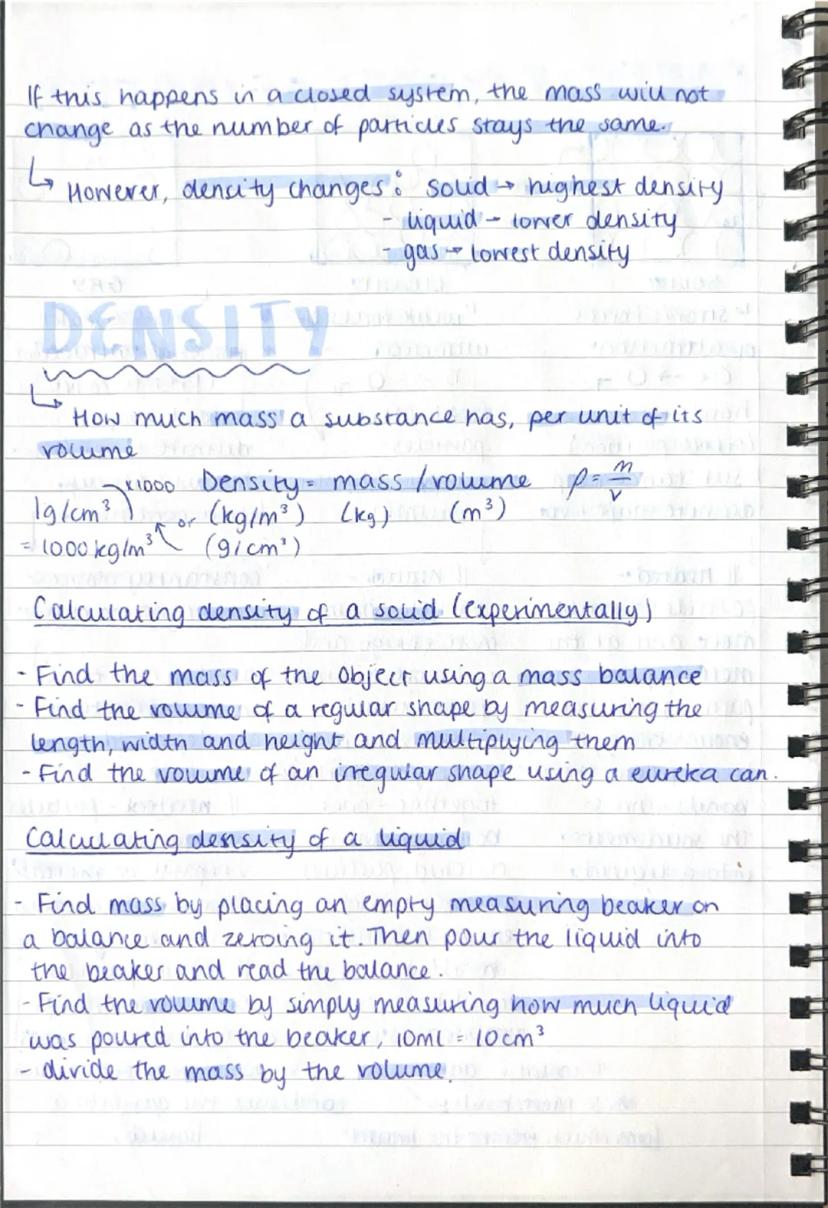 If this happens in a closed system, the mass will not
change as the number of particles stays the same.
↳ However, density changes: solid → highest density
- liquid - lower density
- gas → lowest density
DENSITY
↳ How much mass a substance has, per unit of its
volume
x1000 Density = mass/volume ρ = m/v
1g/cm³ or (kg/m³) (kg) (m³)
= 1000kg/m³ (g/cm³)
Calculating density of a solid (experimentally)
- Find the mass of the object using a mass balance
- Find the volume of a regular shape by measuring the
length, width and height and multiplying them
- Find the volume of an irregular shape using a eureka can.
Calculating density of a liquid
- Find mass by placing an empty measuring beaker on
a balance and zeroing it. Then pour the liquid into
the beaker and read the balance.
- Find the volume by simply measuring how much liquid
was poured into the beaker, 10ml = 10cm³
- divide the mass by the volume.